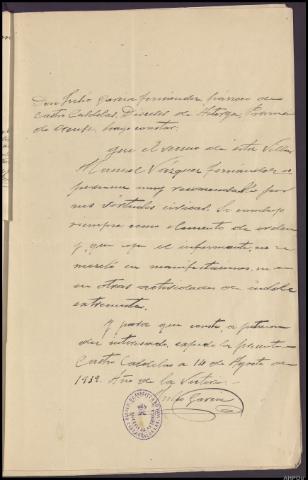 Don Julio García Fernández párroco de
Castro Caldelas, Diócesis de Astorga, Provincia
de Orense, hago constar:
que el vecino de esta Villa
Manuel Vázquez Fernández es
persona muy recomendable por
sus virtudes cívicas. Se condujo
siempre como elemento de orden
y, que sepa el informante, no se
mezcló en manifestaciones, ni en
en otras actividades de índole
extremista.
Y para que conste, a petición
del interesado, expido la presente
Castro Caldelas a 14 de Agosto de
1939. Año de la Victoria.
Julio García